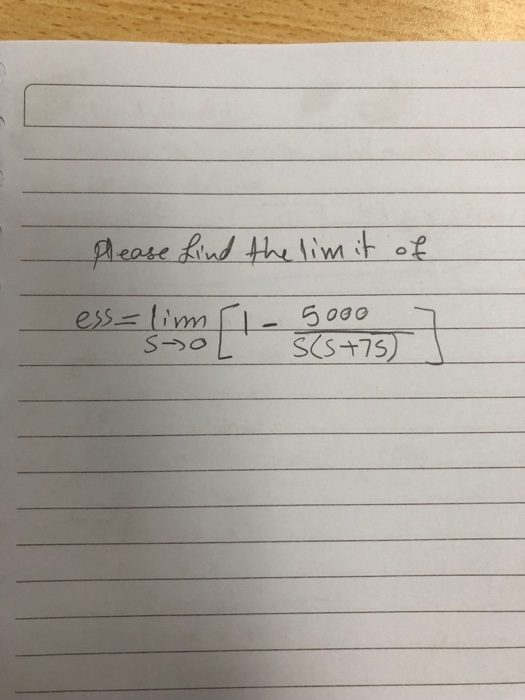 please find the limit of
ess = lim [1 - 5000
s→0 s(s+75) ]